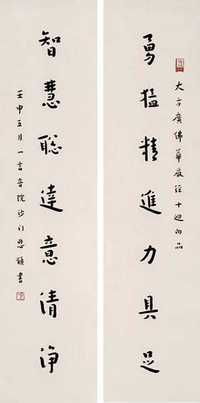 大方廣佛華嚴經十迴向品
勇猛精進力具足
智慧聰達意清淨
壬申五月一音院沙門書